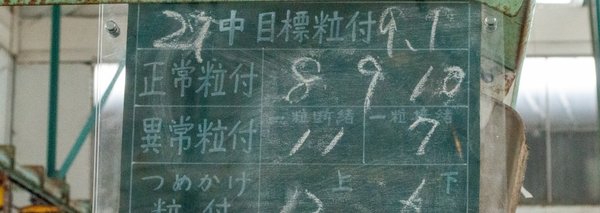 27中目標粒付 9.1
正常粒付 8 9 10
異常粒付 二粒断緒 11 一粒繰緒 7
つめかけ 上 下
粒付